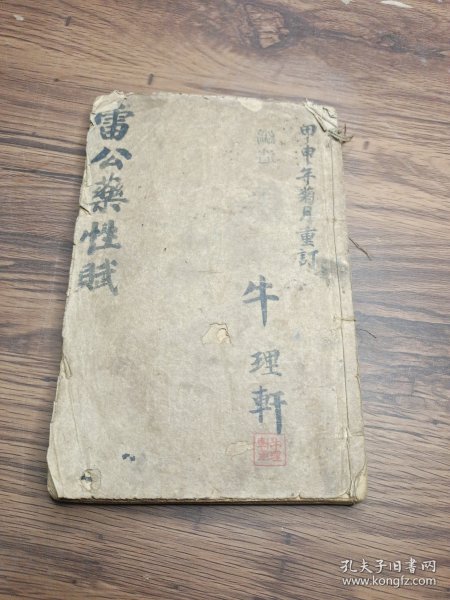 甲申年菊月重訂
牛理軒
雷公藥性賦
孔夫子旧书网
www.kongfz.com